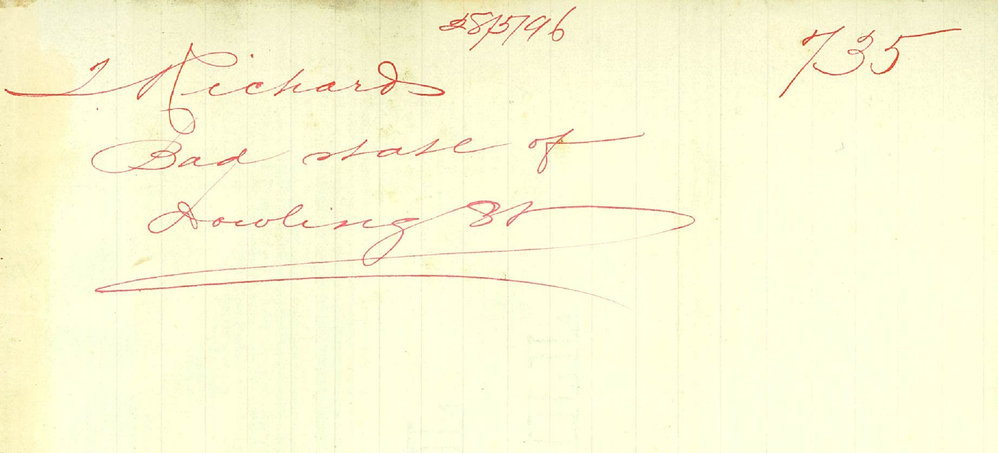 28/5/96
735
J Richards
Bad state of
Dowling St